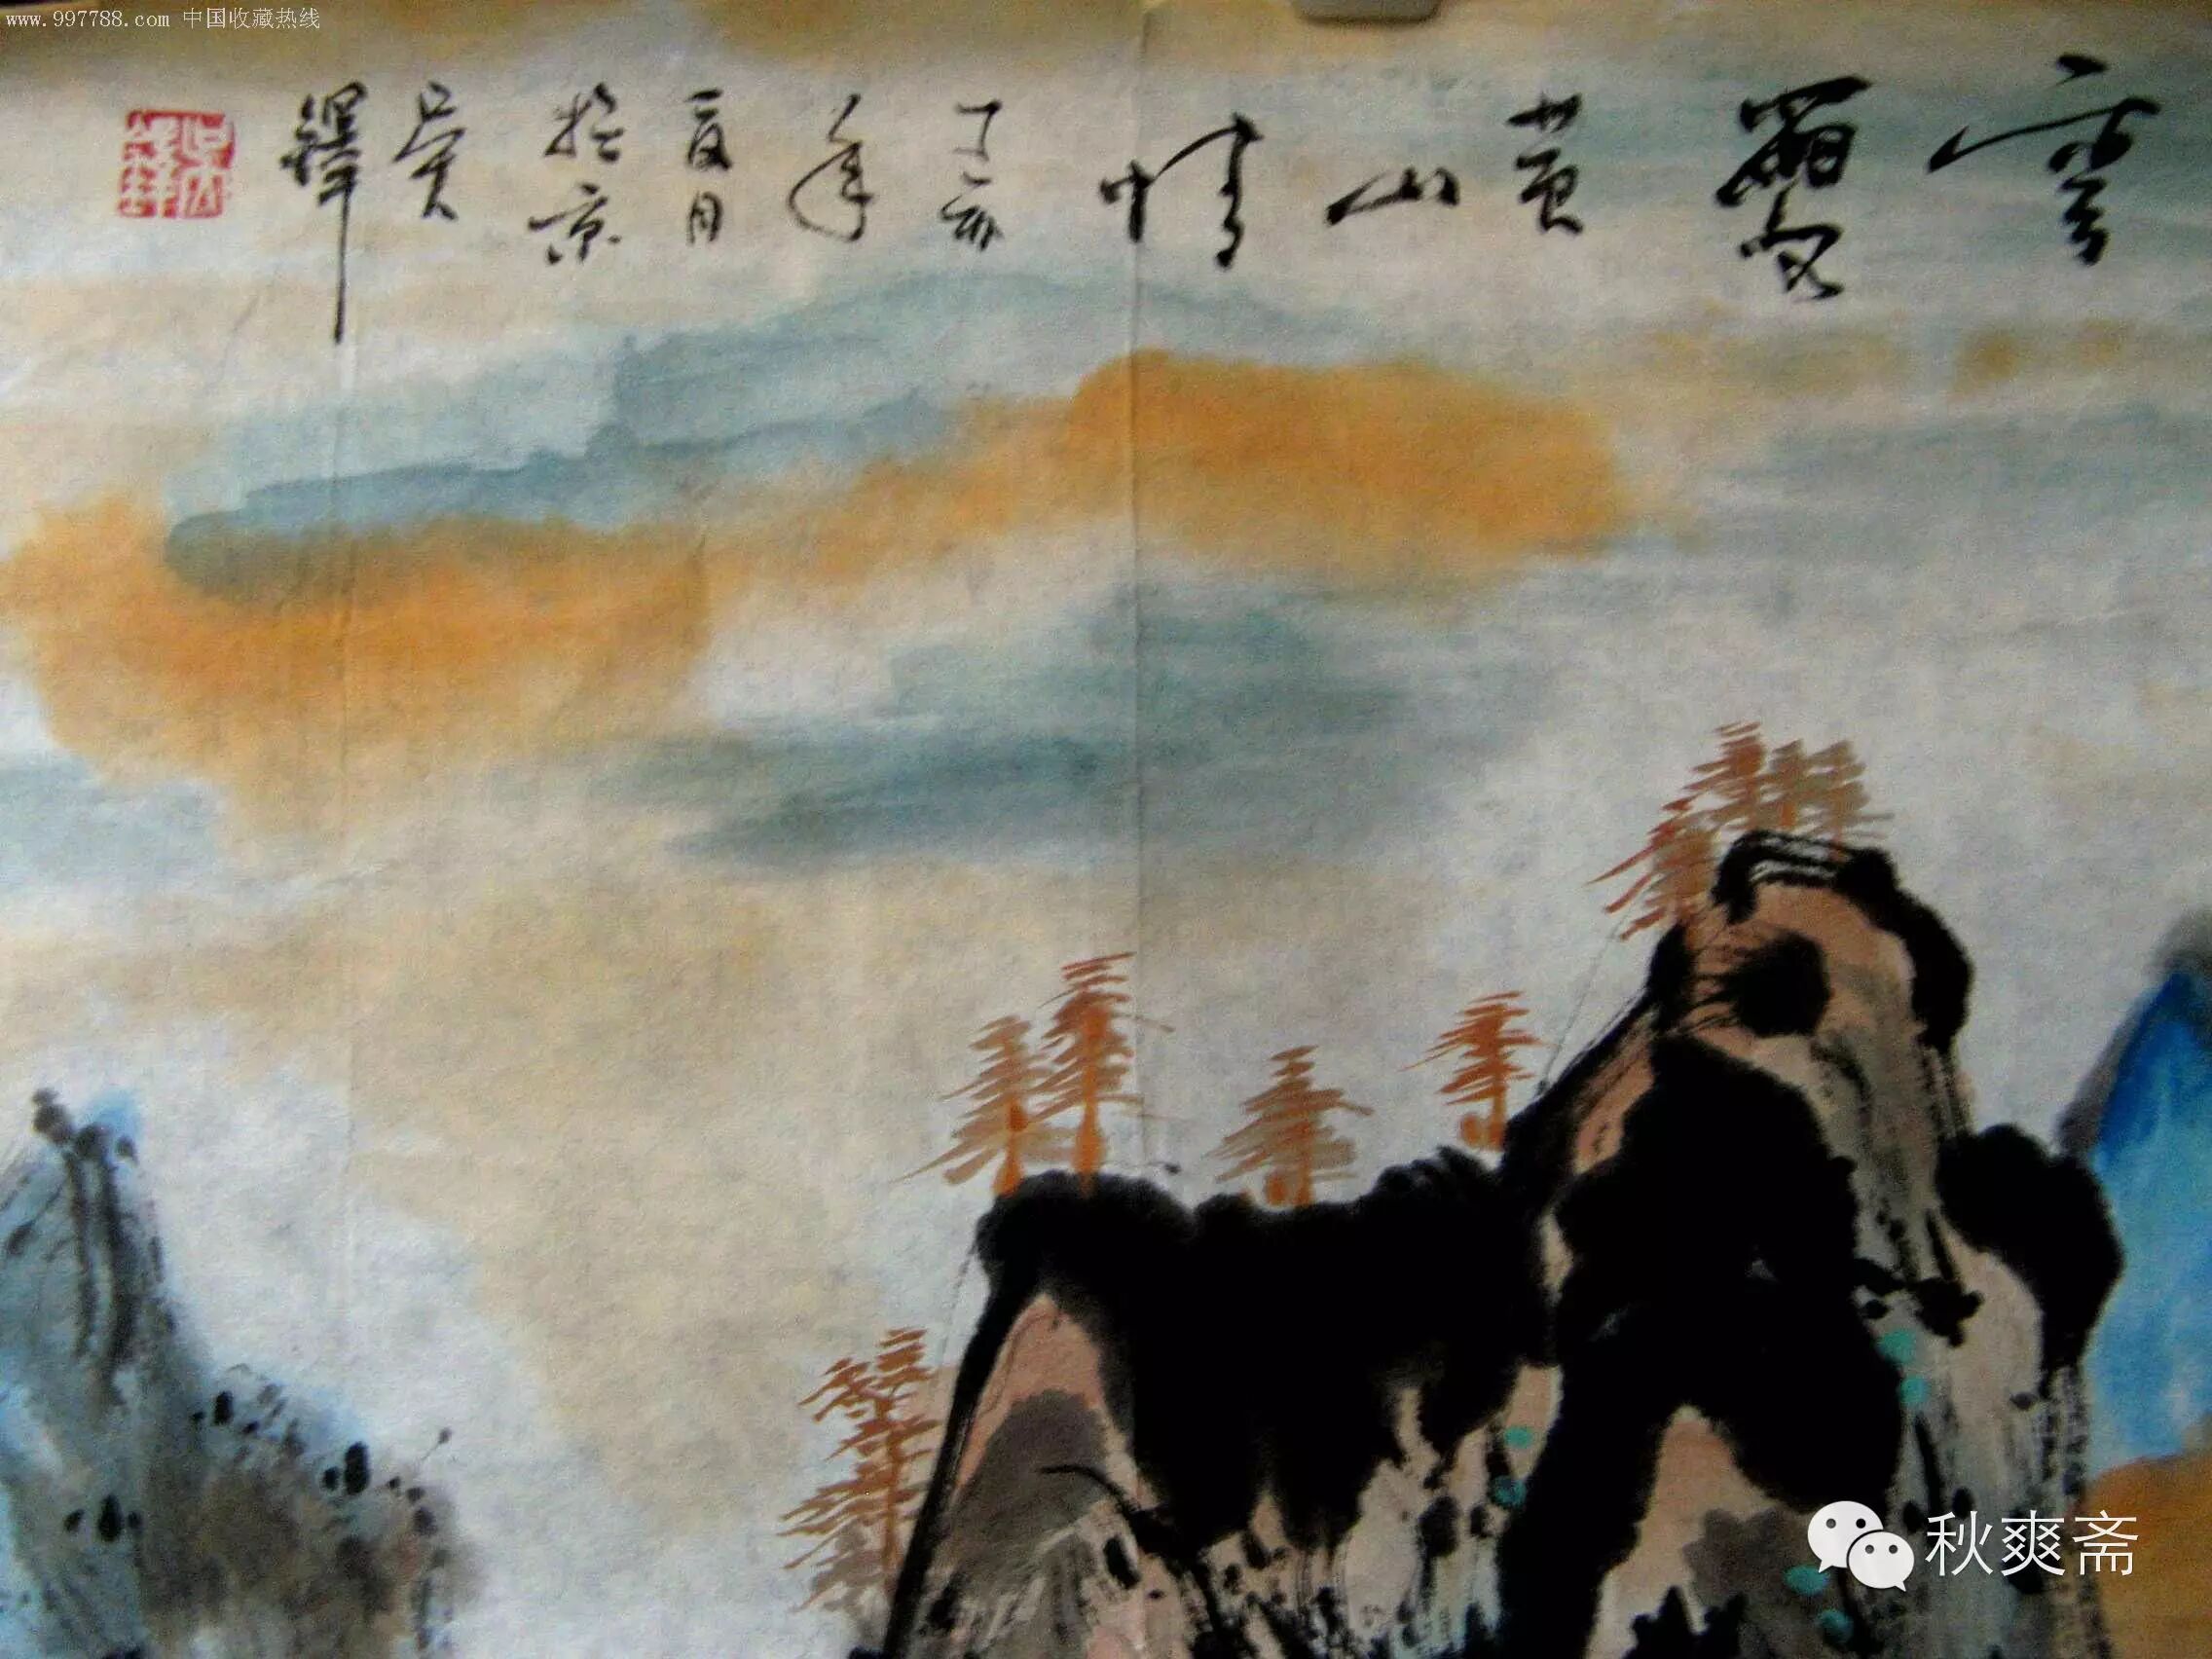 www.997788.com 中国收藏热线
雲
黄山
情
丁亥
年
夏月
於京
吴
铎
秋爽斋